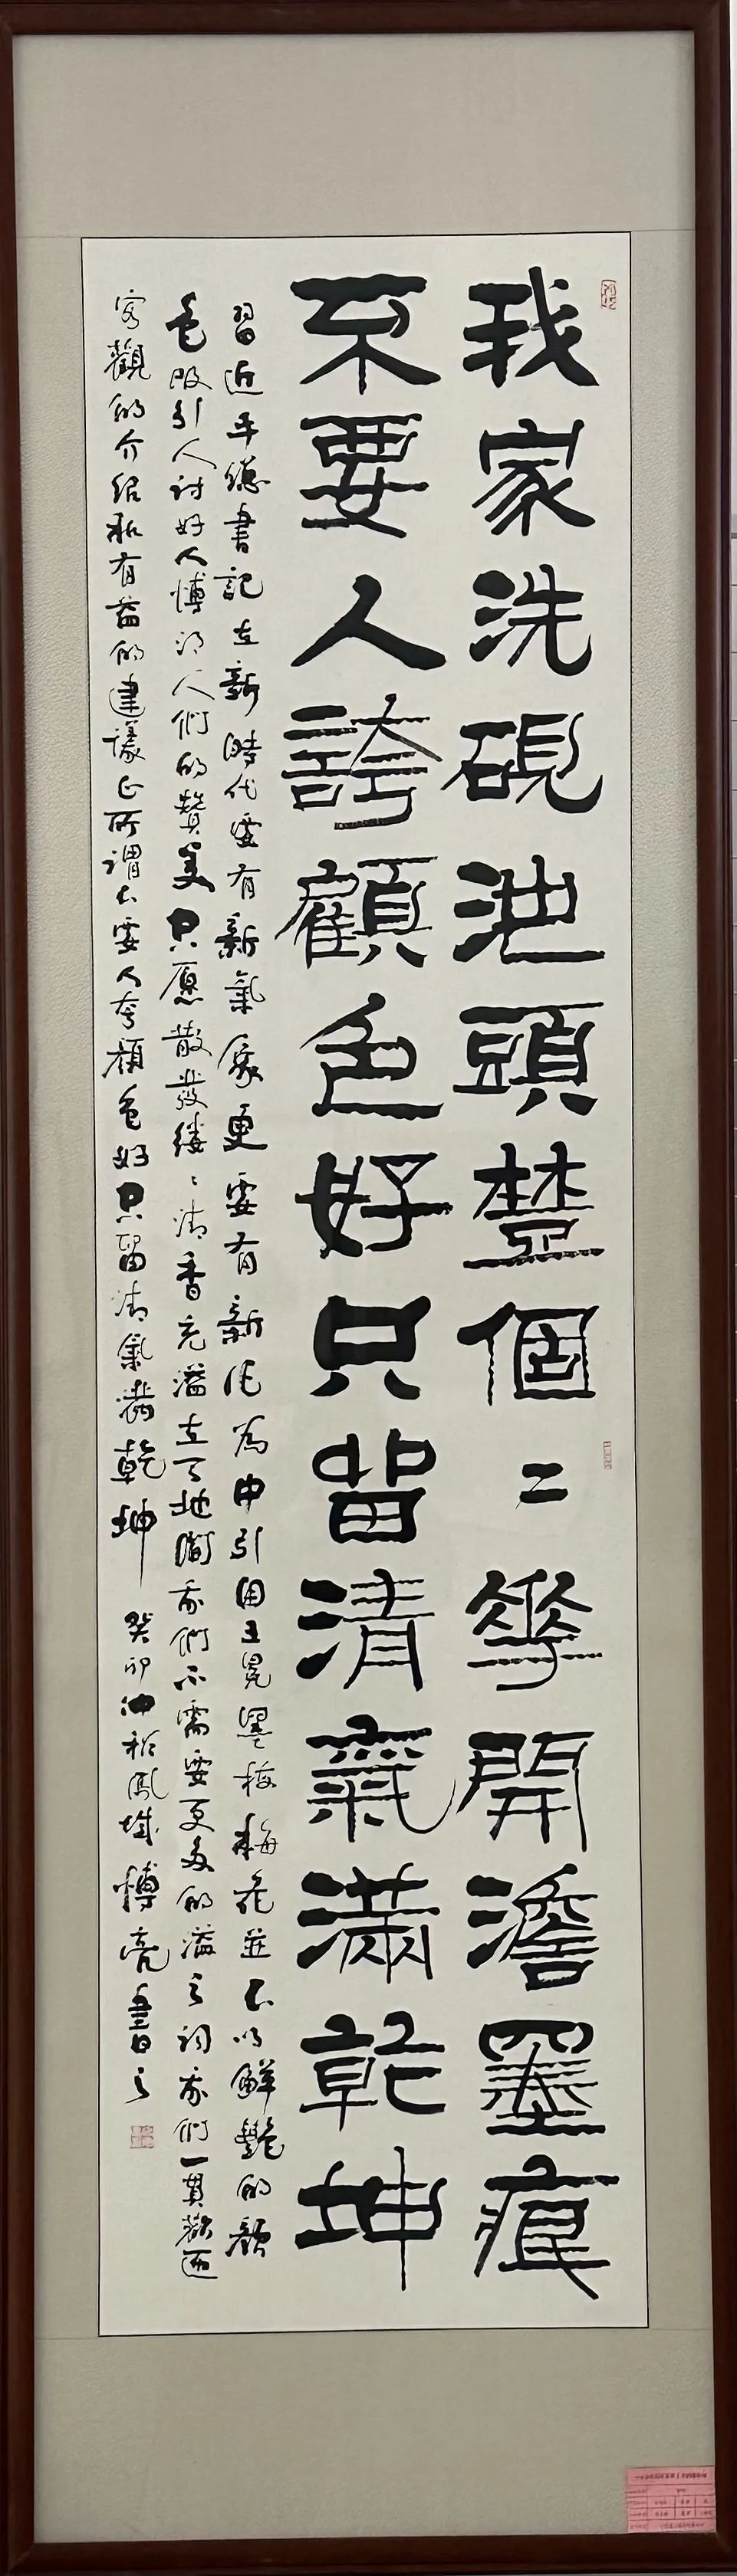 我家洗硯池頭𣗳個二華開澹墨痕
不要人誇顏色好只留清氣滿乾坤
習近平總書記在新時代要有新氣象更要有新作為中引用王冕墨梅梅花並不以鮮艷的顏
色吸引人討好人博得人們的贊美只愿散發縷〻清香充溢在天地間我們不需要更多的溢之詞我們一貫歡迎
客觀的介紹和有益的建議正所謂不要人夸顏色好只留清氣滿乾坤 癸卯仲秋鳳城博亮書之